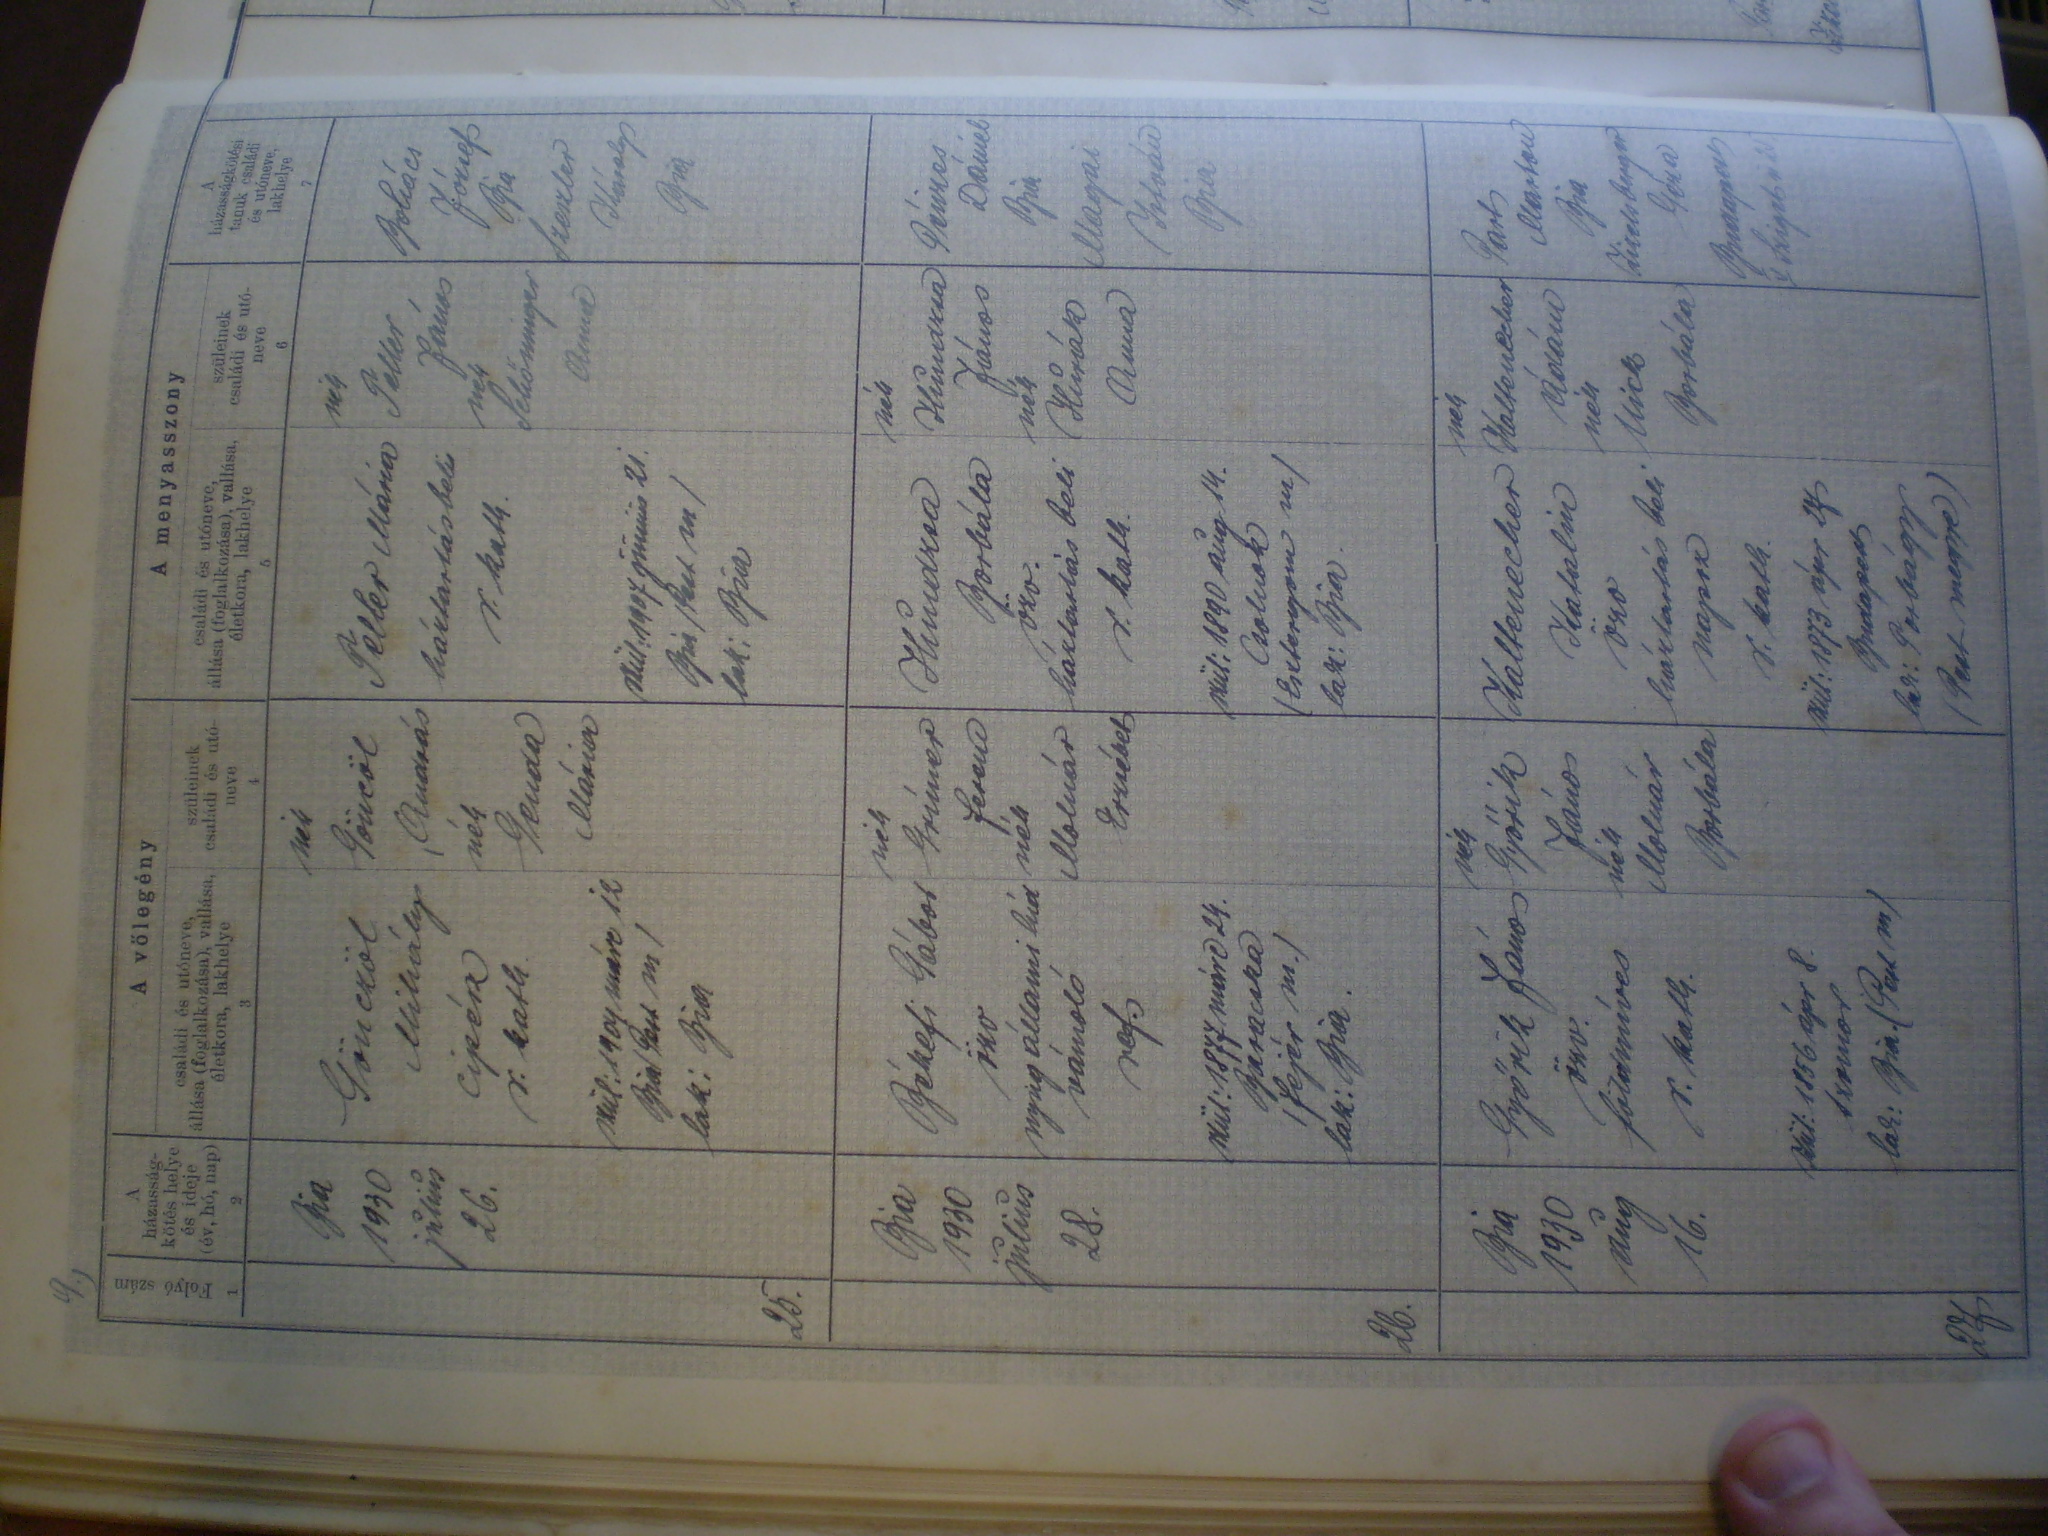 9.)
A völegény
A menyasszony
Folyó szám
A házasság-
kötés helye
és ideje
(év, hó, nap)
családi és utóneve,
állása (foglalkozása), vallása,
életkora, lakhelye
szüleinek
családi és utó-
neve
családi és utóneve,
állása (foglalkozása), vallása,
életkora, lakhelye
szüleinek
családi és utó-
neve
A
házasságkötési
tanuk családi
és utóneve,
lakhelye
1
2
3
4
5
6
7
25.
Bia
1930
július
26.
Gönczöl
Mihály
cipész
r. kath.
szül: 1904 márc 12
Bia (Pest m)
lak: Bia
néh
Gönczöl
András
néh
Genda
Mária
Peller Mária
háztartásbeli
r. kath.
szül: 1907 június 21.
Bia (Pest m)
lak: Bia
néh
Peller
János
néh
Schöninger
Anna
Bolács
József
Bia
Szeszler
Károly
Bia
26.
Bia
1930
július
28.
Békefi Gábor
özv
nyug állami hid
vámoló
ref.
szül: 1877 márc 24.
Baracska
(Fejér m.)
lak: Bia.
néh
Grüner
Ferenc
néh
Molnár
Erzsébet
Hundzsa
Borbála
özv.
háztartás beli
r. kath.
szül: 1890 aug 14.
Csolnok
(Esztergom m)
lak: Bia.
néh
Hundzsa
János
néh
Anna
Dániel
Bia
Magai
Bia
27
Bia
1930
Aug
16.
Györik János
özv.
földmíves
r. kath.
szül: 1856 ápr 8.
lak: Bia. (Pest m)
néh
Györik
János
néh
Molnár
Borbála
Kaltenecher
Katalin
özv
háztartás beli
napsz
r. kath.
szül: 1873 ápr 27
Budapest
lak: Torbágy
(Pest megye)
néh
Kaltenecher
Ádám
néh
Mick
Borbála
Márton
Bia
Géza
Budapest